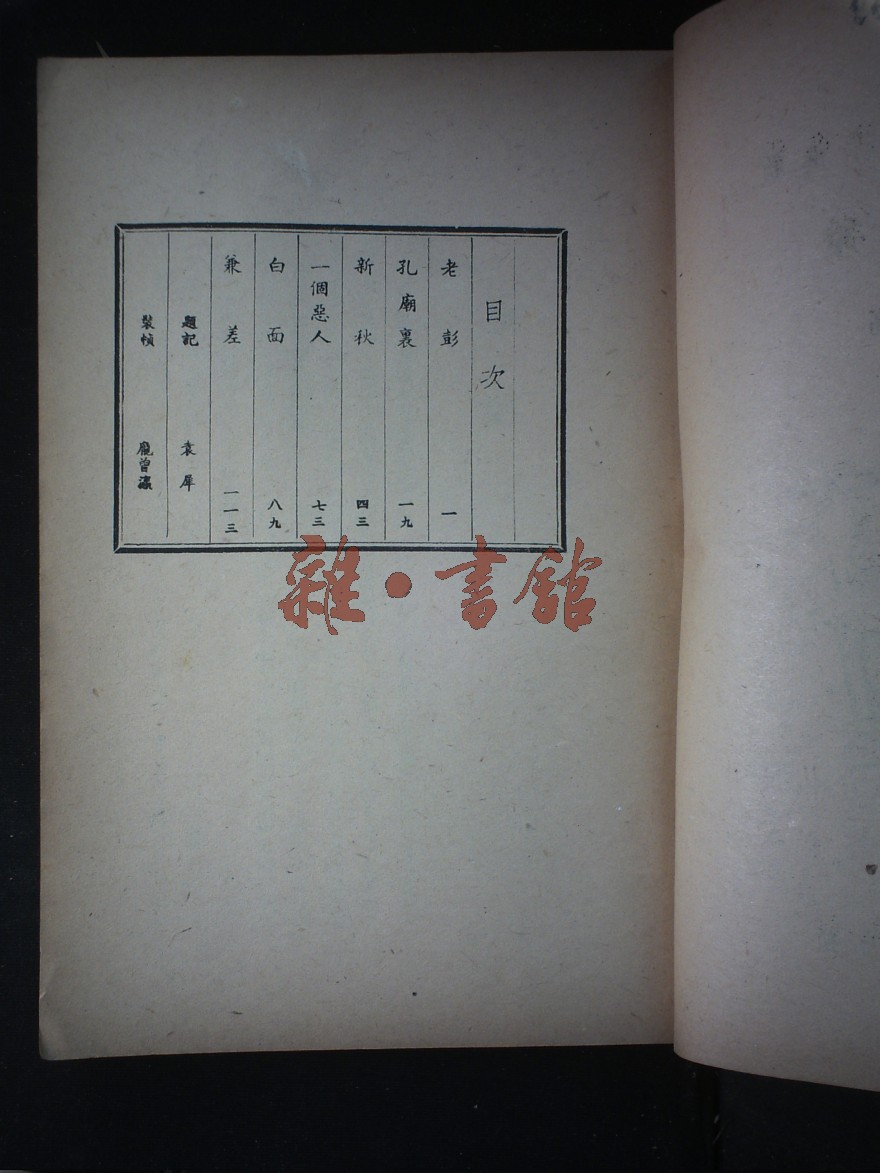 目次
老彭 一
孔廟裏 一九
新秋 四三
一個惡人 七三
白面 八九
兼差 一一三
題記 袁犀
裝幀 龐曾瀛
雜·書舘